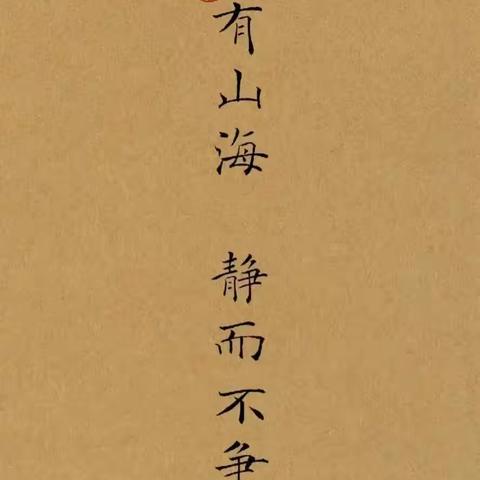 有山海 静而不争